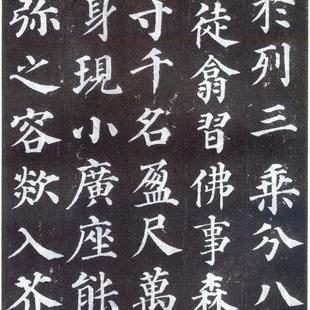 於列三乘分八
徒翕習佛事森
寸千名盈尺萬
身現小廣座能
弥之容欻入芥